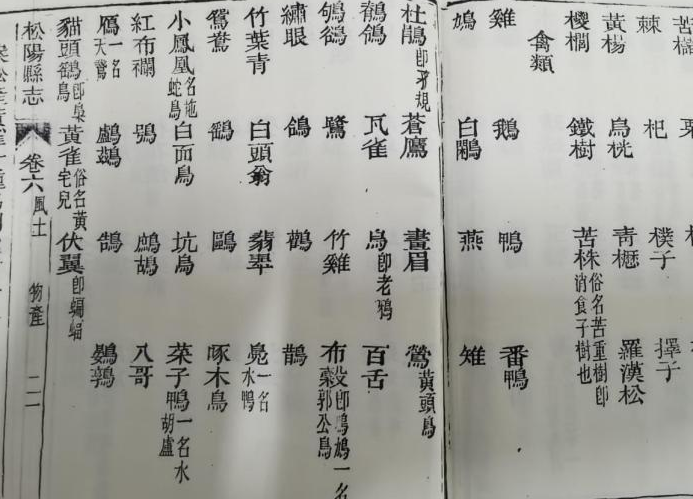 棘　杞　樸子　擇子
黃楊　烏桄　青櫪　羅漢松
椶櫚　鐵樹　苦株俗名苦重樹即消食子樹也
禽類
雞　鵝　鴨　番鴨
鳩　白鷴　燕　雉
杜鵑即子規　蒼鷹　畫眉　鶯黃頭鳥
鶺鴒　瓦雀　烏即老鴉　百舌
鴝鵒　鷺　竹雞　布穀即鳲鳩一名郭公鳥
繡眼　鴿　鸛　鵲
竹葉青　白頭翁　翡翠　鳧一名水鴨
鴛鴦　鷂　鷗　啄木鳥
小鳳凰名拖蛇鳥　白面鳥　坑鳥　菜子鴨一名水胡盧
紅布襴　鴞　鷓鴣　八哥
鴈一名大鶩　鸕鷀　鵠　鷃鶉
貓頭鵒即梟鳥　黃雀俗名黃宅兒　伏翼即蝙蝠
松陽縣志　卷六　風土　物產　二二